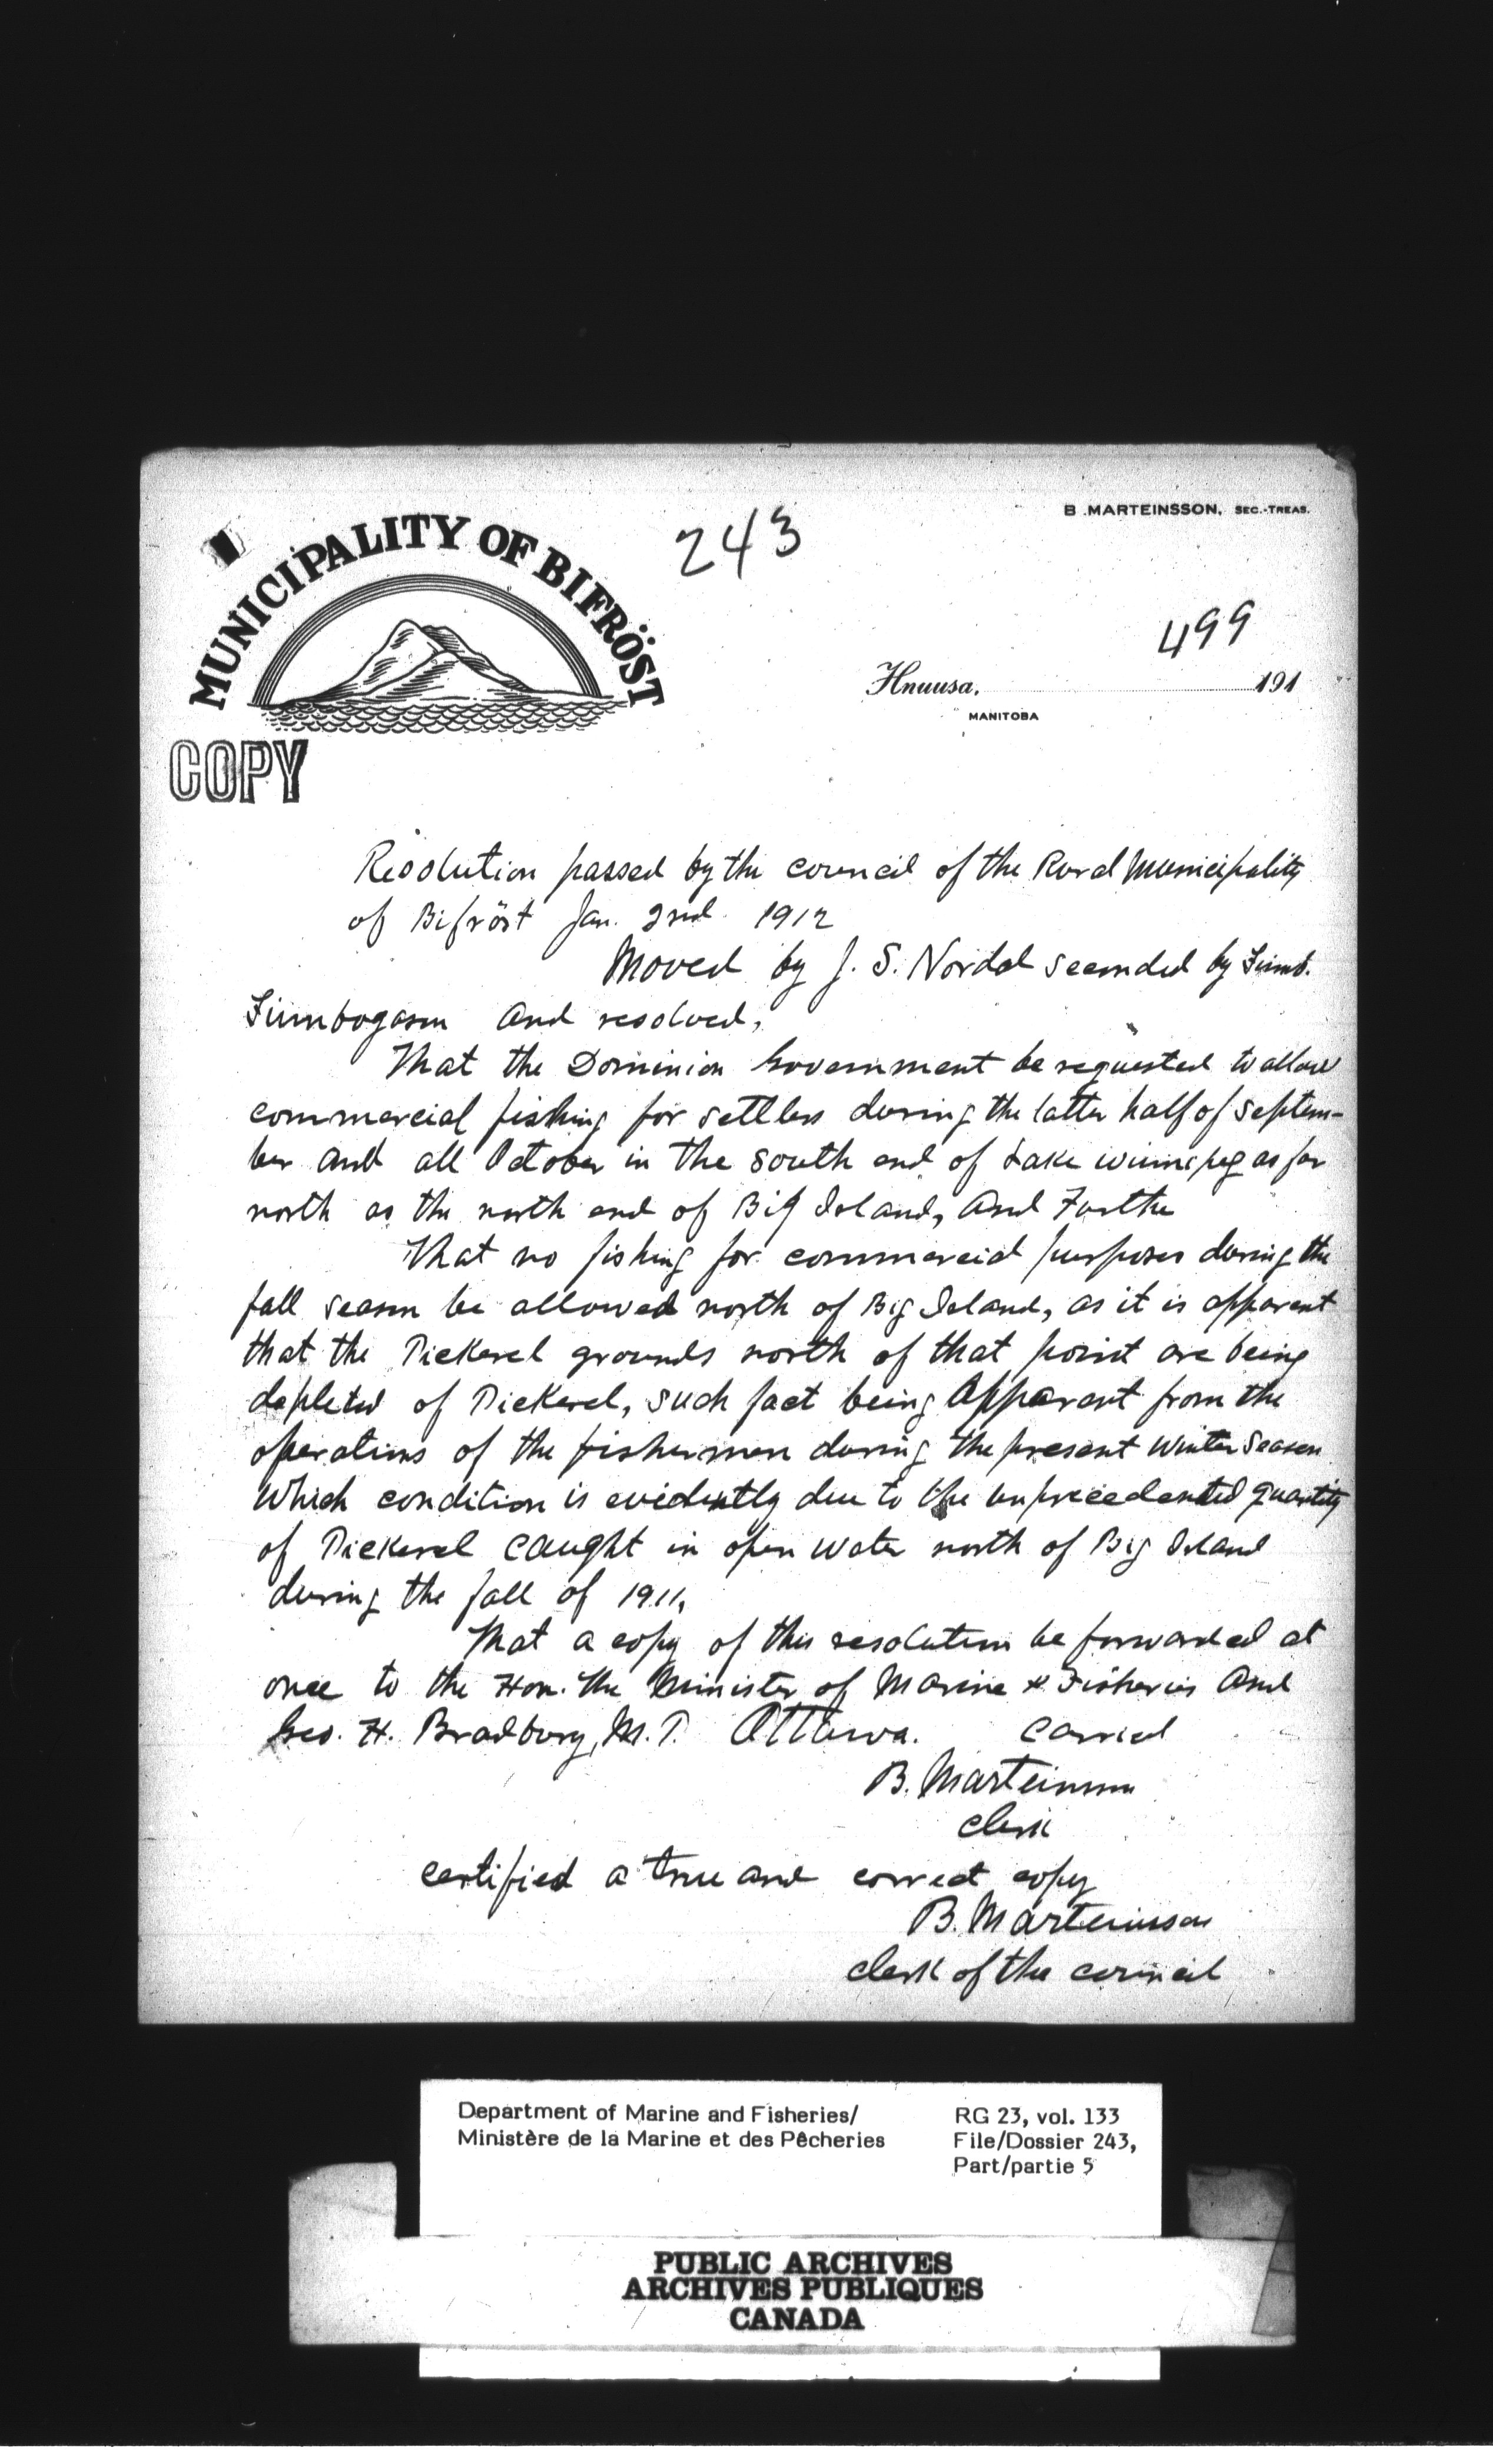 B. MARTEINSSON, SEC.-TREAS.
MUNICIPALITY OF BIFRÖST
243
499
Hnausa, 191
MANITOBA
COPY
Resolution passed by the council of the Rural Municipality
of Bifröst Jan. 2nd 1912
Moved by J. S. Nordal seconded by Finnb.
Finnbogason and resolved,
That the Dominion Government be requested to allow
commercial fishing for settlers during the latter half of Septem-
ber and all October in the south end of Lake Winnipeg as far
north as the north end of Big Island, and Further
That no fishing for commercial purposes during the
fall season be allowed north of Big Island, as it is apparent
that the Pickerel grounds north of that point are being
depleted of Pickerel, such fact being apparent from the
operations of the fishermen during the present winter season
which condition is evidently due to the unprecedented quantity
of Pickerel caught in open water north of Big Island
during the fall of 1911,
That a copy of this resolution be forwarded at
once to the Hon. the Minister of Marine & Fisheries and
Geo. H. Bradbury, M.P. Ottawa. Carried
B. Marteinsson
Clerk
certified a true and correct copy
B. Marteinsson
clerk of the council
Department of Marine and Fisheries/
Ministère de la Marine et des Pêcheries
RG 23, vol. 133
File/Dossier 243,
Part/partie 5
PUBLIC ARCHIVES
ARCHIVES PUBLIQUES
CANADA